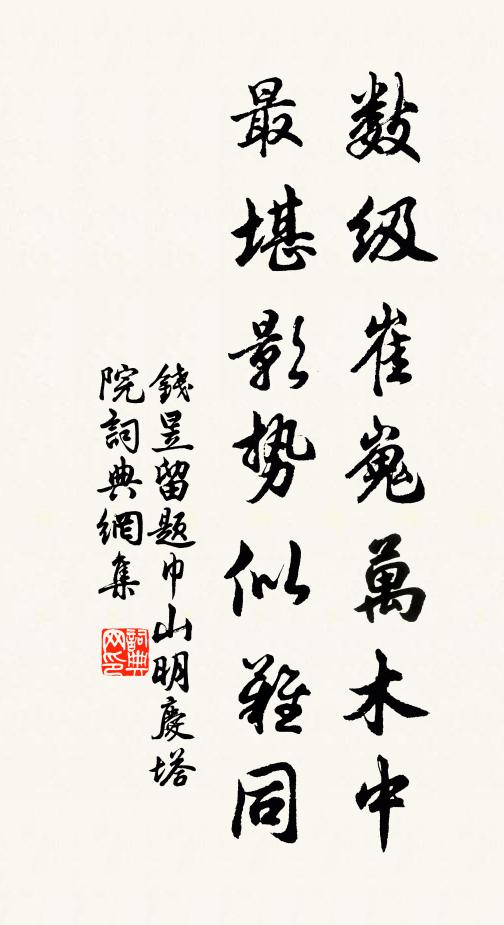 数级崔嵬萬木中
最堪影势似難同
錢昱留題巾山明慶塔
院詞典網集
詞典
网印